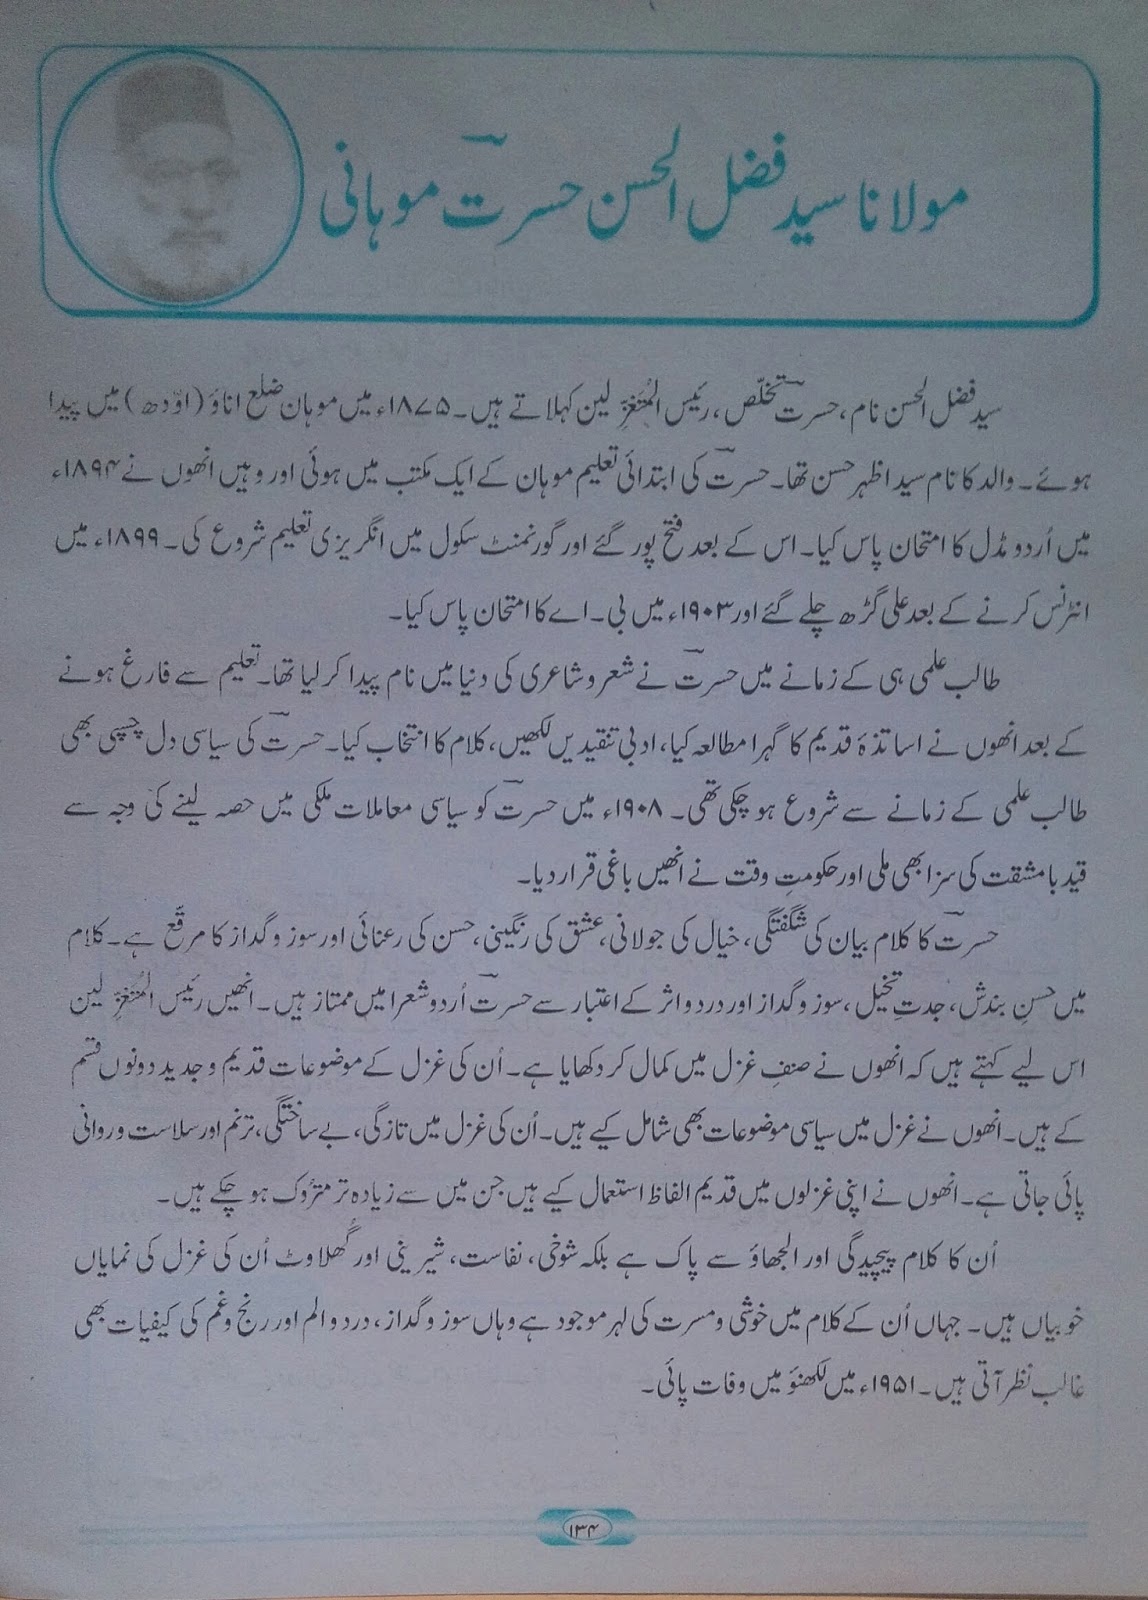 مولانا سید فضل الحسن حسرتؔ موہانی
سید فضل الحسن نام، حسرتؔ تخلّص، رئیس المُتَغزِّلین کہلاتے ہیں۔ ۱۸۷۵ء میں موہان ضلع اناؤ (اوَدھ) میں پیدا
ہوئے۔ والد کا نام سید اظہر حسن تھا۔ حسرتؔ کی ابتدائی تعلیم موہان کے ایک مکتب میں ہوئی اور وہیں انھوں نے ۱۸۹۴ء
میں اُردو مڈل کا امتحان پاس کیا۔ اس کے بعد فتح پور گئے اور گورنمنٹ سکول میں انگریزی تعلیم شروع کی۔ ۱۸۹۹ء میں
انٹرنس کرنے کے بعد علی گڑھ چلے گئے اور ۱۹۰۳ء میں بی۔ اے کا امتحان پاس کیا۔
طالب علمی ہی کے زمانے میں حسرتؔ نے شعر و شاعری کی دنیا میں نام پیدا کر لیا تھا۔ تعلیم سے فارغ ہونے
کے بعد انھوں نے اساتذۂ قدیم کا گہرا مطالعہ کیا، ادبی تنقیدیں لکھیں، کلام کا انتخاب کیا۔ حسرتؔ کی سیاسی دل چسپی بھی
طالب علمی کے زمانے سے شروع ہو چکی تھی۔ ۱۹۰۸ء میں حسرتؔ کو سیاسی معاملات ملکی میں حصہ لینے کی وجہ سے
قید با مشقت کی سزا بھی ملی اور حکومتِ وقت نے انھیں باغی قرار دیا۔
حسرتؔ کا کلام بیان کی شگفتگی، خیال کی جولانی، عشق کی رنگینی، حسن کی رعنائی اور سوز و گداز کا مرقّع ہے۔ کلام
میں حسنِ بندش، جدتِ تخیل، سوز و گداز اور درد و اثر کے اعتبار سے حسرتؔ اُردو شعرا میں ممتاز ہیں۔ انھیں رئیس المُتَغزِّلین
اس لیے کہتے ہیں کہ انھوں نے صنفِ غزل میں کمال کر دکھایا ہے۔ اُن کی غزل کے موضوعات قدیم و جدید دونوں قسم
کے ہیں۔ انھوں نے غزل میں سیاسی موضوعات بھی شامل کیے ہیں۔ اُن کی غزل میں تازگی، بے ساختگی، ترنم اور سلاست و روانی
پائی جاتی ہے۔ انھوں نے اپنی غزلوں میں قدیم الفاظ استعمال کیے ہیں جن میں سے زیادہ تر متروک ہو چکے ہیں۔
اُن کا کلام پیچیدگی اور الجھاؤ سے پاک ہے بلکہ شوخی، نفاست، شیرینی اور گُھلاوٹ اُن کی غزل کی نمایاں
خوبیاں ہیں۔ جہاں اُن کے کلام میں خوشی و مسرت کی لہر موجود ہے وہاں سوز و گداز، درد و الم اور رنج و غم کی کیفیات بھی
غالب نظر آتی ہیں۔ ۱۹۵۱ء میں لکھنؤ میں وفات پائی۔
۱۳۴